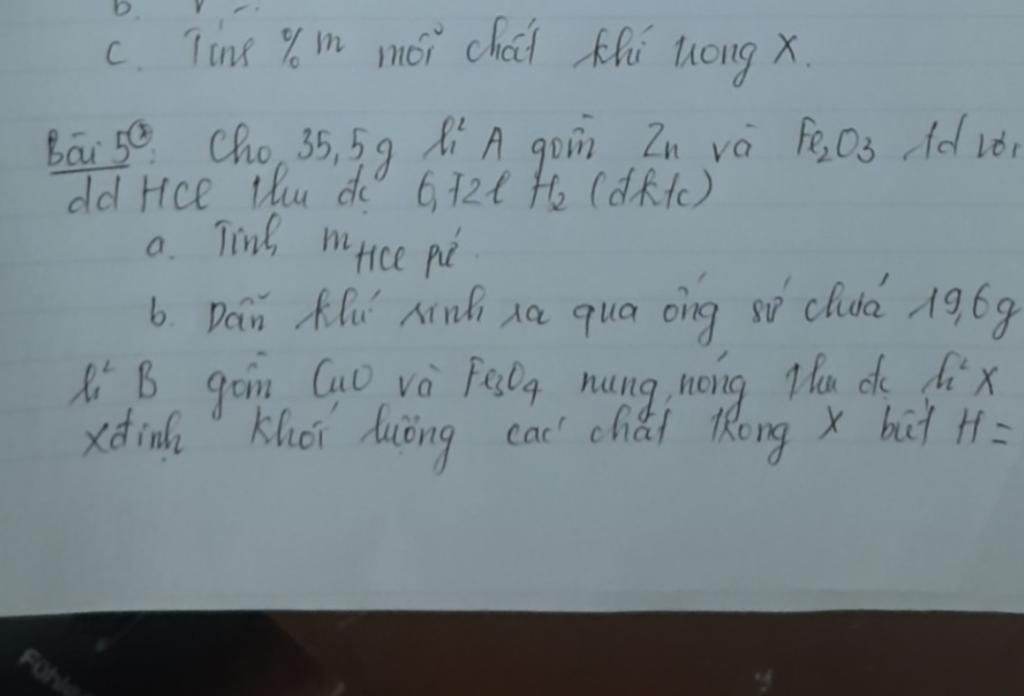 b.
C. Tính % m mỗi chất khí trong X.
Bài 5: Cho 35,5g h² A gồm Zn và Fe2O3 td với
dd HCl thu đc 6,72l H2 (đktc)
a. Tính mHCl pứ.
b. Dẫn khí sinh ra qua ống sứ chứa 19,6g
h² B gồm CuO và Fe3O4 nung nóng thu đc h² X
xđịnh khối lượng các chất trong X biết H =